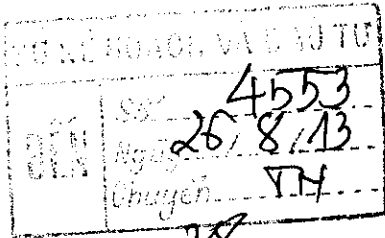 SỞ KẾ HOẠCH VÀ ĐẦU TƯ
ĐẾN
Số: 4553
Ngày 26/8/13
Chuyển TH